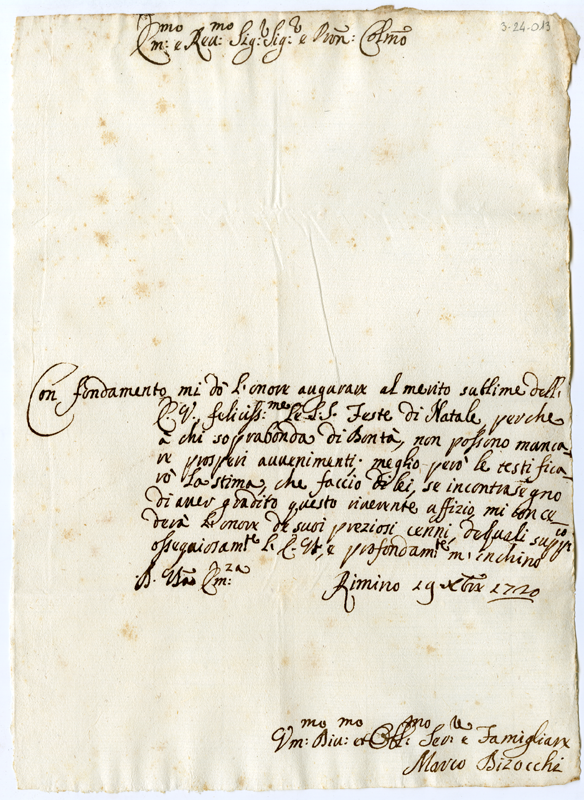 3-24-013
Em:mo e Reu:mo Sig:r Sig:r e Pron: Colmo
Con fondamento mi dò l'onore augurare al merito sublime dell'
E. V. feliciss:me Le S.S. Feste di Natale, perche
à chi soprabonda di Bontà, non possono manca-
re prosperi auuenimenti; meglio però le testifica-
rò la stima, che faccio di lei, se incontrasegno
di auer gradito questo riuerente uffizio mi conce-
derà l'onore de suoi preziosi cenni, de quali supp:co
ossequiosam:te l'E. V., e profondam:te m'inchino
D. V:ra Em:za
Rimino 29 Xbre 1720
Vm:mo Diu:mo et Obl:mo Ser:e e Famigliare
Marco Bizocchi